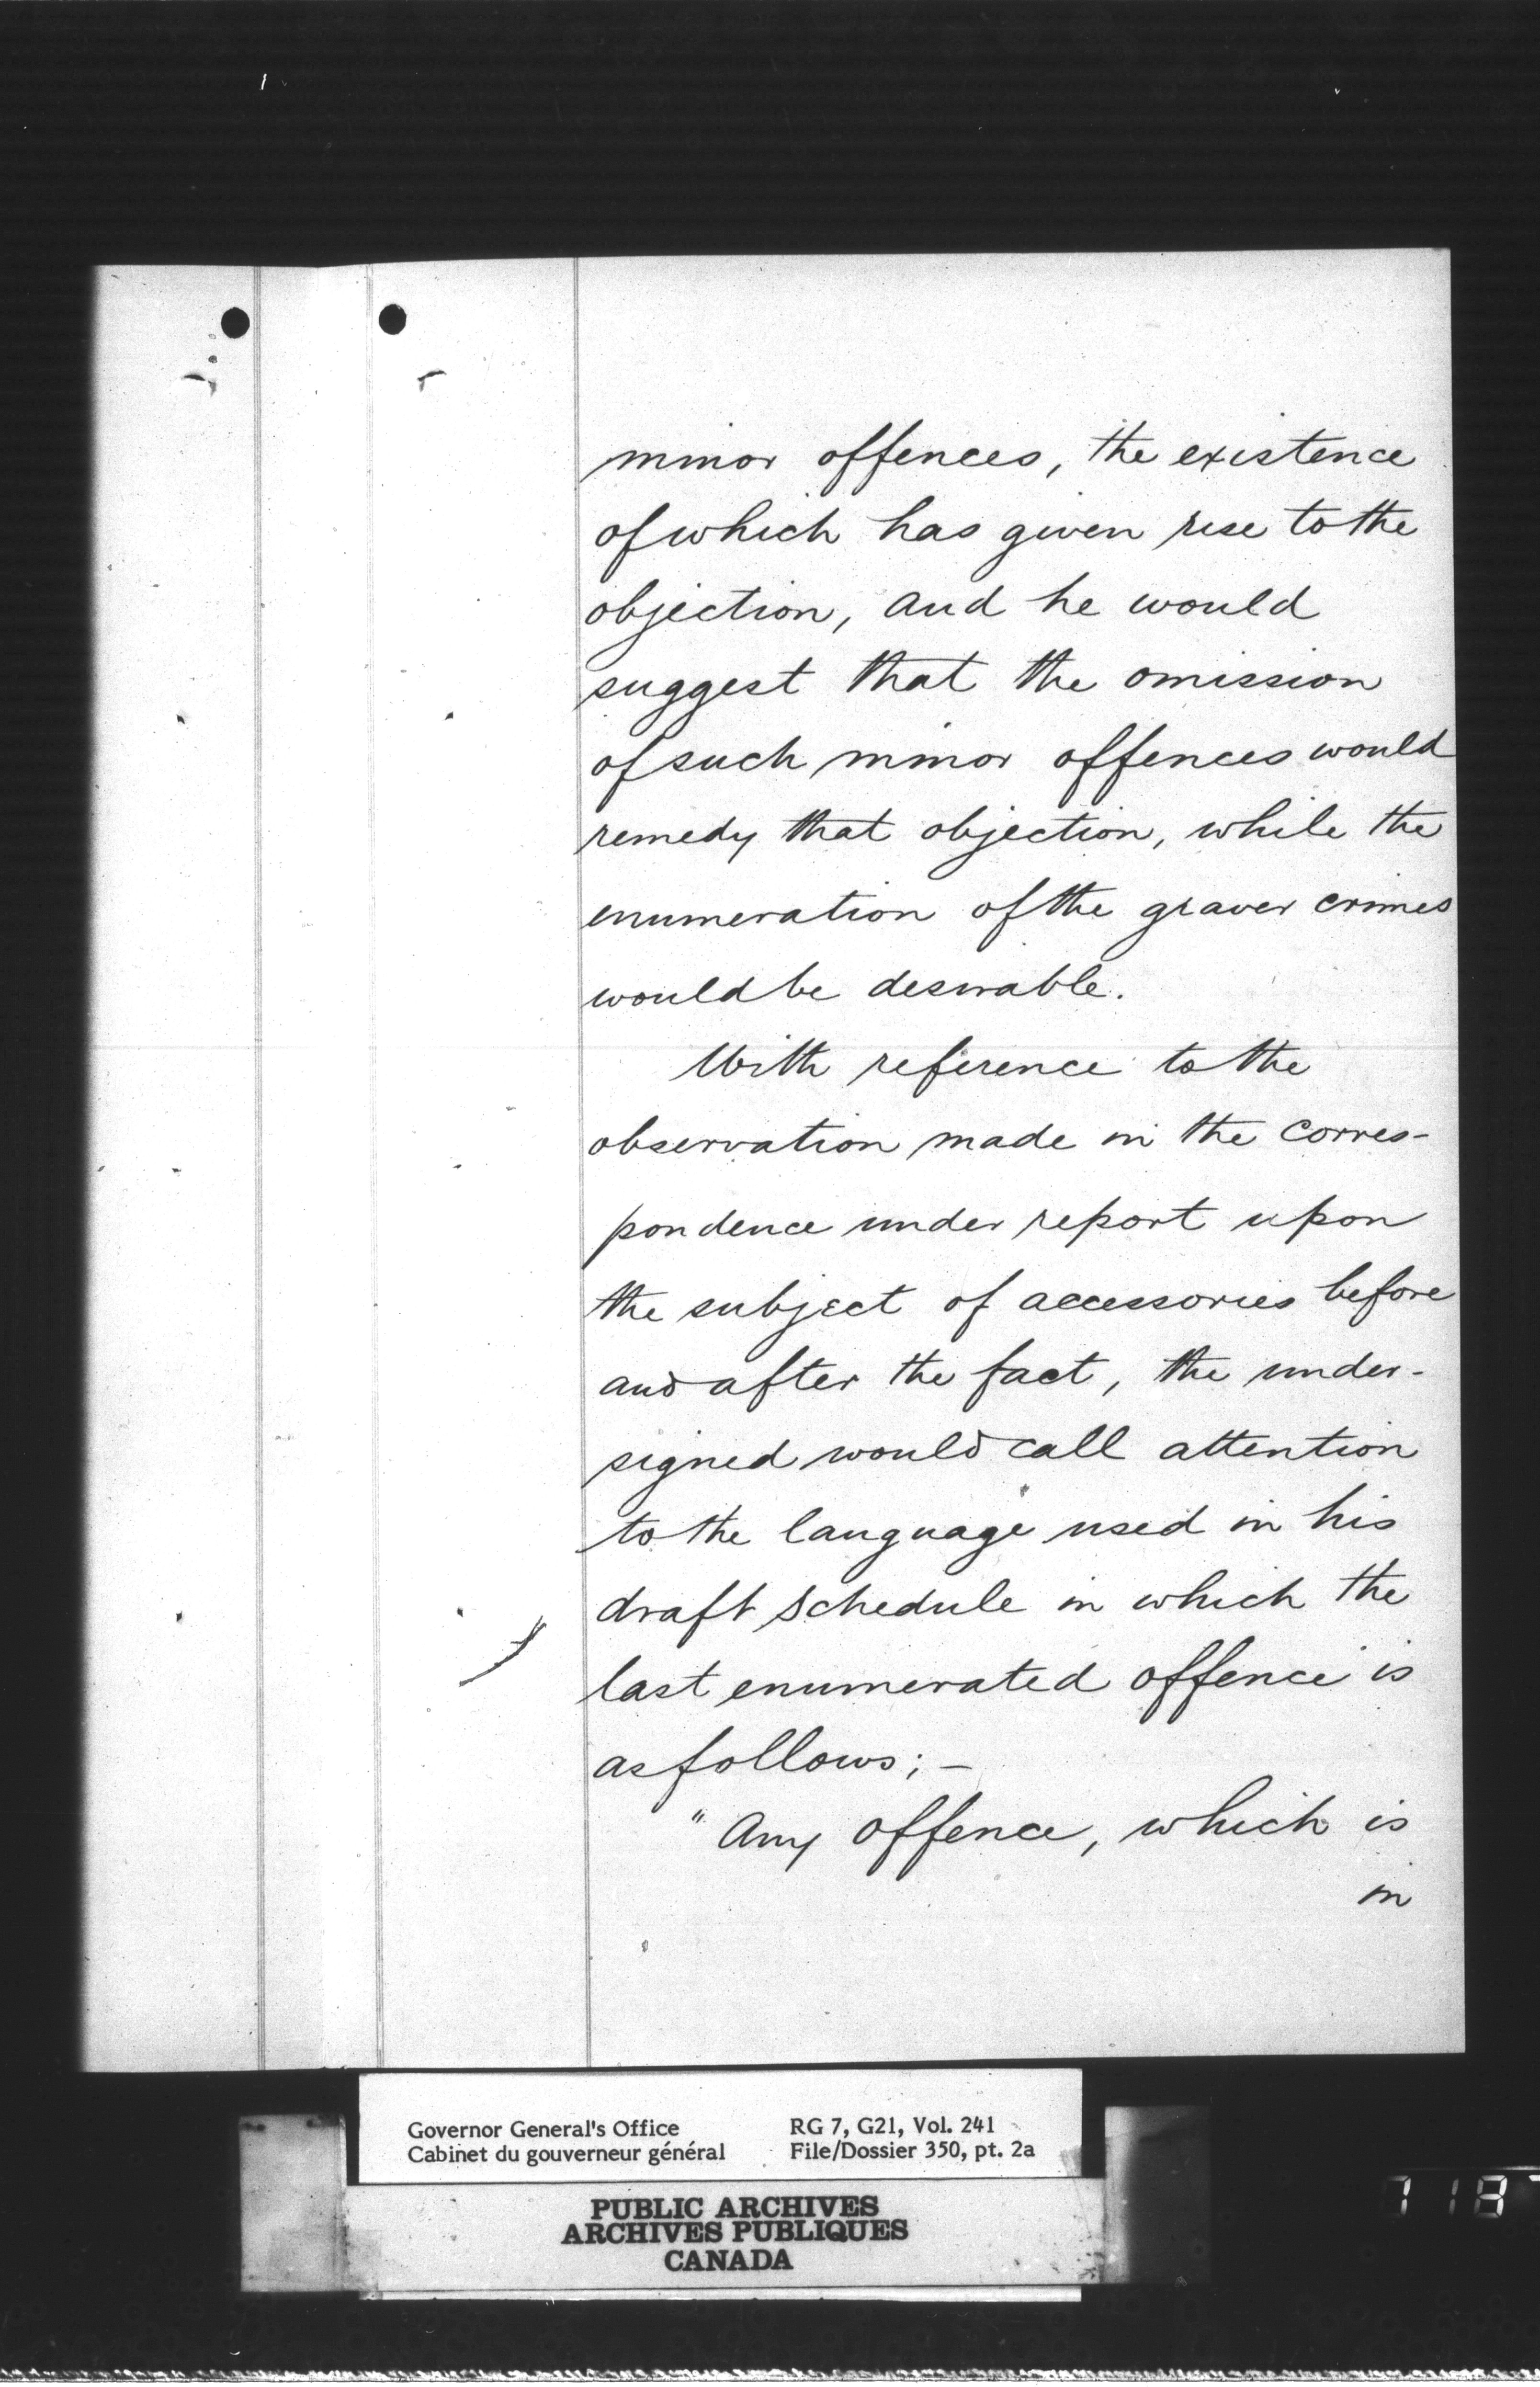 minor offences, the existence
of which has given rise to the
objection, and he would
suggest that the omission
of such minor offences would
remedy that objection, while the
enumeration of the graver crimes
would be desirable.
With reference to the
observation made in the corres-
pondence under report upon
the subject of accessories before
and after the fact, the under-
signed would call attention
to the language used in his
draft schedule in which the
last enumerated offence is
as follows; —
" Any offence, which is
in
Governor General's Office
Cabinet du gouverneur général
RG 7, G21, Vol. 241
File/Dossier 350, pt. 2a
PUBLIC ARCHIVES
ARCHIVES PUBLIQUES
CANADA